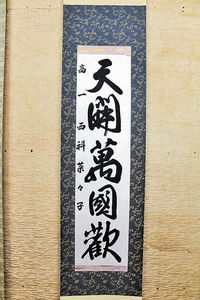 天開萬國歡
高一西科菜々子